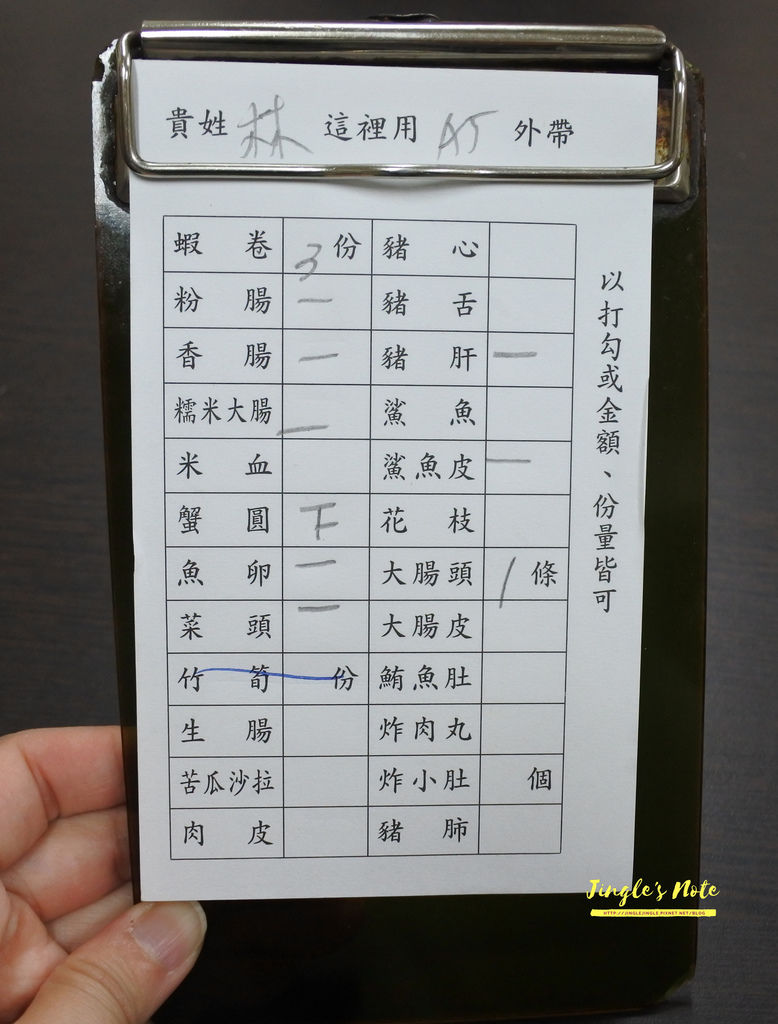 貴姓 林 這裡用 A5 外帶
蝦卷 3份 豬心
粉腸 一 豬舌
香腸 一 豬肝 一
糯米大腸 一 鯊魚
米血 鯊魚皮 一
蟹圓 下 花枝
魚卵 一 大腸頭 1條
菜頭 一 大腸皮
竹筍 份 鮪魚肚
生腸 炸肉丸
苦瓜沙拉 炸小肚 個
肉皮 豬肺
以打勾或金額、份量皆可
Jingle's Note
HTTP://JINGLEJINGLE.PIXNET.NET/BLOG